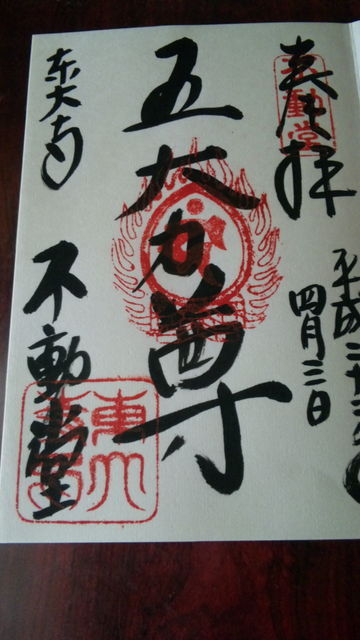 奉拝
不動堂
平成二十二年
四月三日
五大力尊
東大寺
不動堂
東大